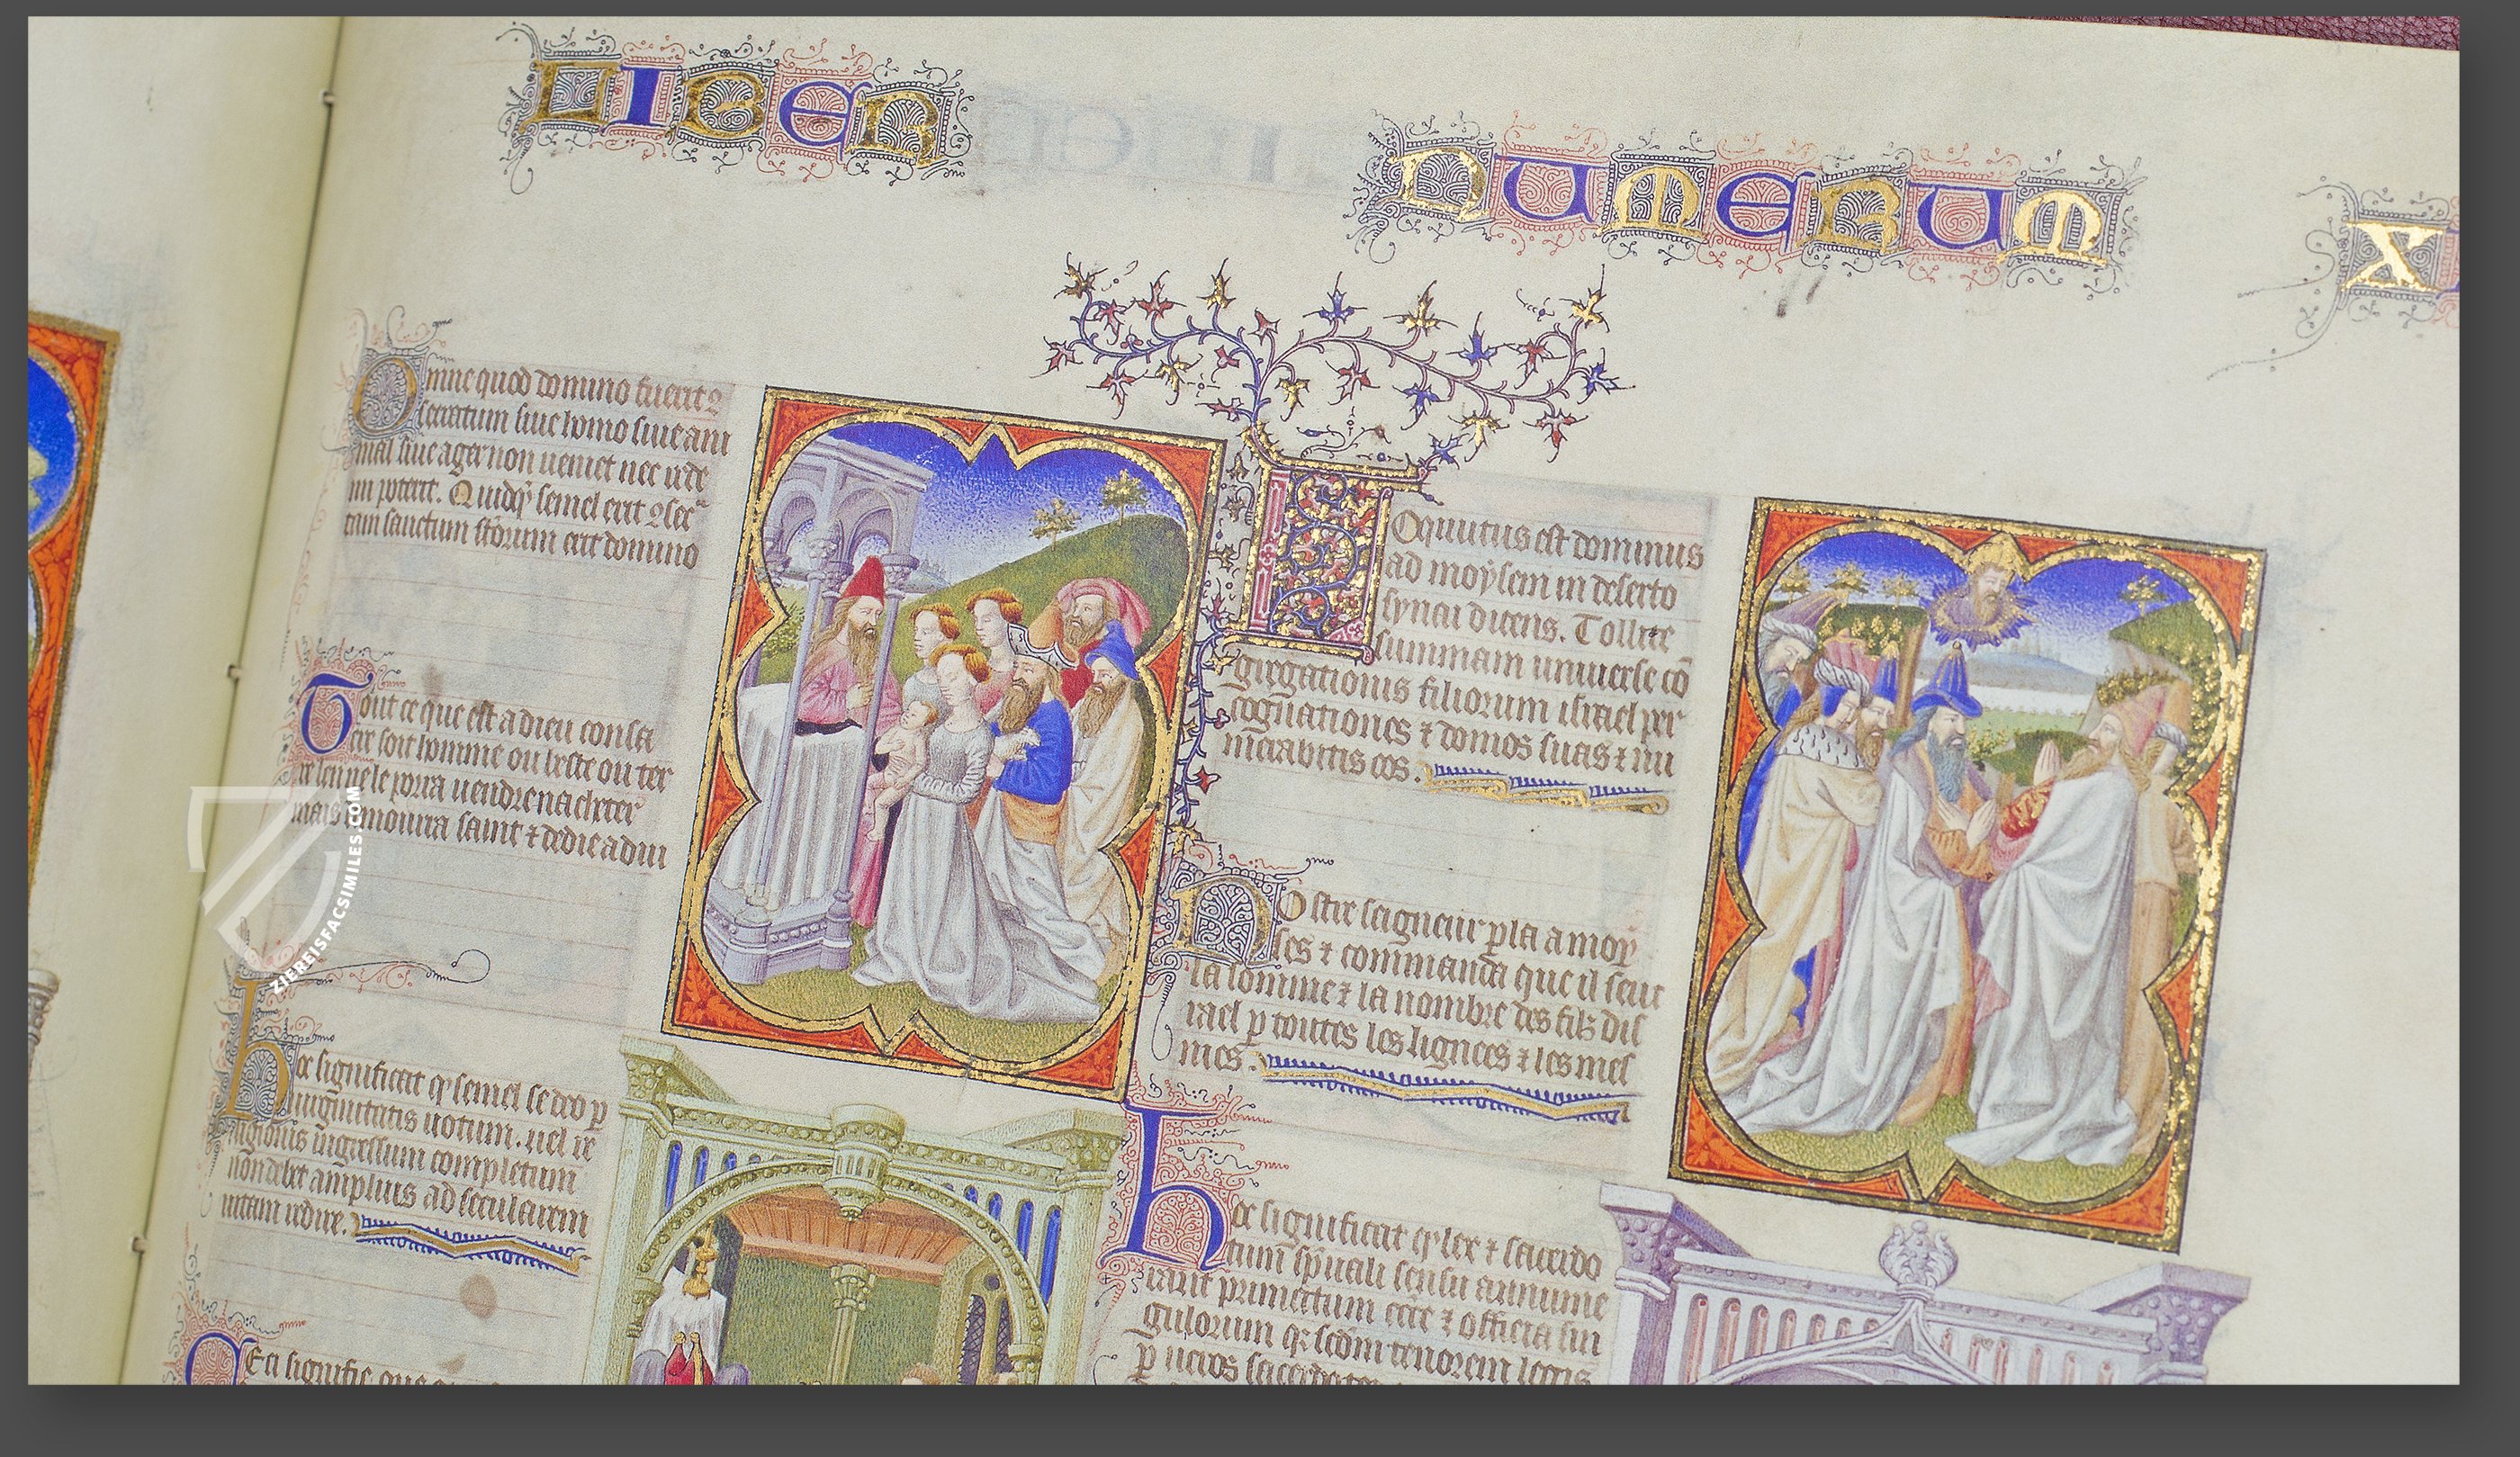 LIBER NUMERUM X
Omne quod domino fuerit ꝯ
secratum siue homo siue ani
mal siue ager non ueniet nec uede
mi poterit. Quidq̄ semel erit ꝯsecᵃ
tum sanctum sc̄orum erit domino
Tout ce que est a dieu consa
cre soit homme ou beste ou ter
re len ne le porra uendre na cheter
mais demourra saint ⁊ dedie a dieu
hoc significat q̄ semel se deo p
uirginitatis uotum. uel re
ligionis īgressum completum
non debet amplius ad secularem
uitam redire.
Ceci signifie que
Loquutus est dominus
ad moysem in deserto
synai dicens. Tollite
summam uniuerse cō
gregationis filiorum israel per
cognationes ⁊ domos suas ⁊ nu
merabitis eos.
Nostre seigneur p̱la a moy
ses ⁊ commanda que il sceut
la somme ⁊ la nombre des filz dis
rael p̱ toutes les lignees ⁊ les mes
mes.
hoc significat q̄ lex ⁊ sacerdo
tum sp̄uali sensu annume
rant primetum ⁊ officia sin
gulorum qꝛ scdm tenorem legis
p̱ ueros
ZIEREISFACSIMILES.COM